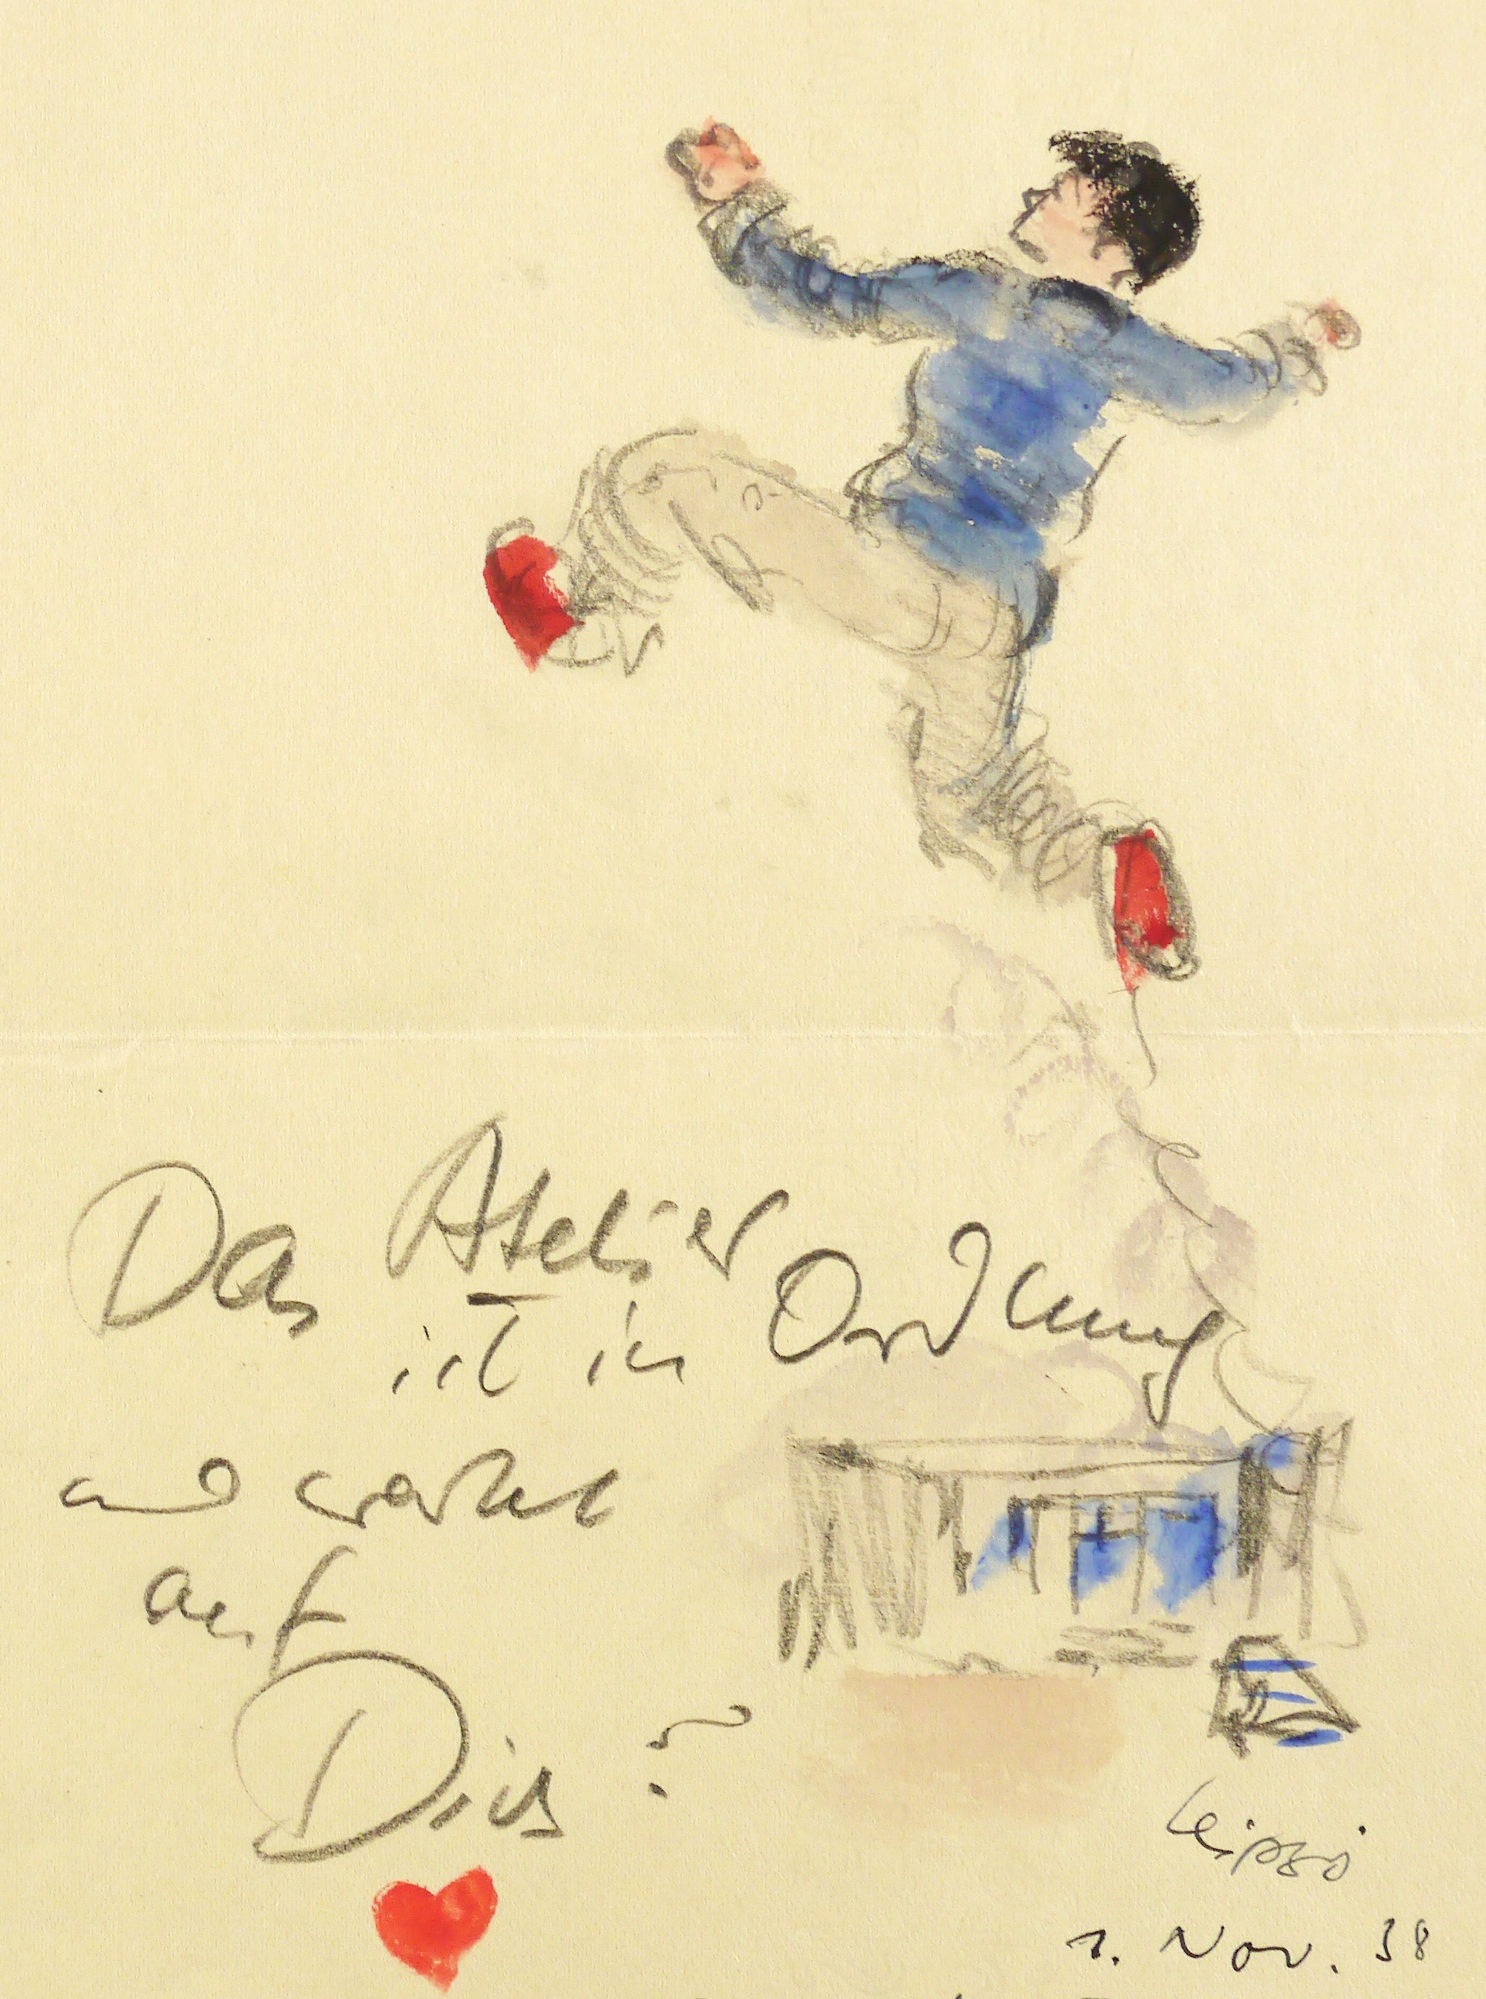 Das Atelier
ist in Ordnung
und wartet
auf
Dich
Leipzig
1. Nov. 38